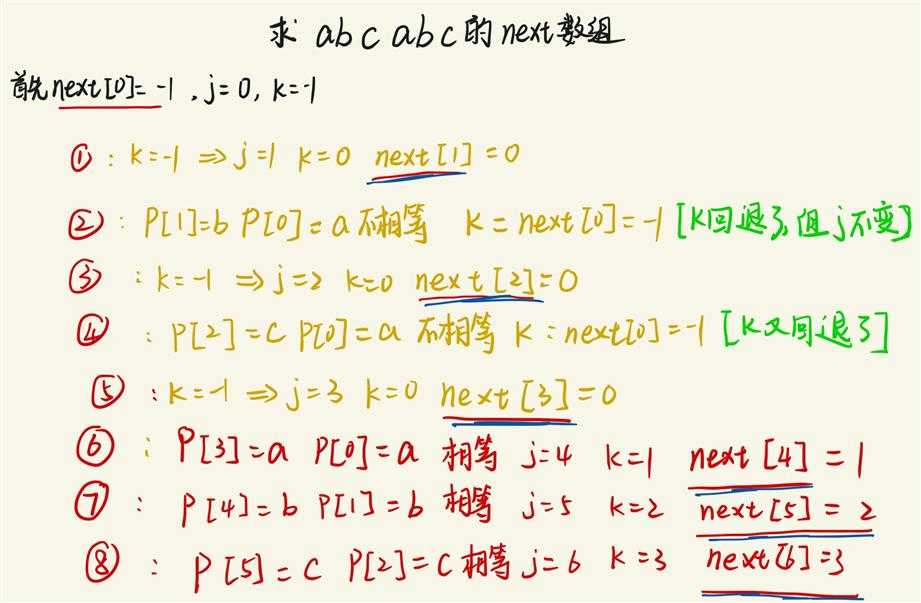 求 abcabc的next数组
首先next[0]=-1,j=0,k=-1
①:k=-1 ⇒j=1 k=0 next[1]=0
②:P[1]=b P[0]=a不相等 k=next[0]=-1[k回退了,但j不变]
③:k=-1 ⇒j=2 k=0 next[2]=0
④:P[2]=c P[0]=a 不相等 k:next[0]=-1[k又回退了]
⑤:k=-1 ⇒j=3 k=0 next[3]=0
⑥:P[3]=a P[0]=a 相等 j=4 k=1 next[4]=1
⑦:P[4]=b P[1]=b 相等 j=5 k=2 next[5]=2
⑧:P[5]=c P[2]=c相等j=6 k=3 next[6]=3